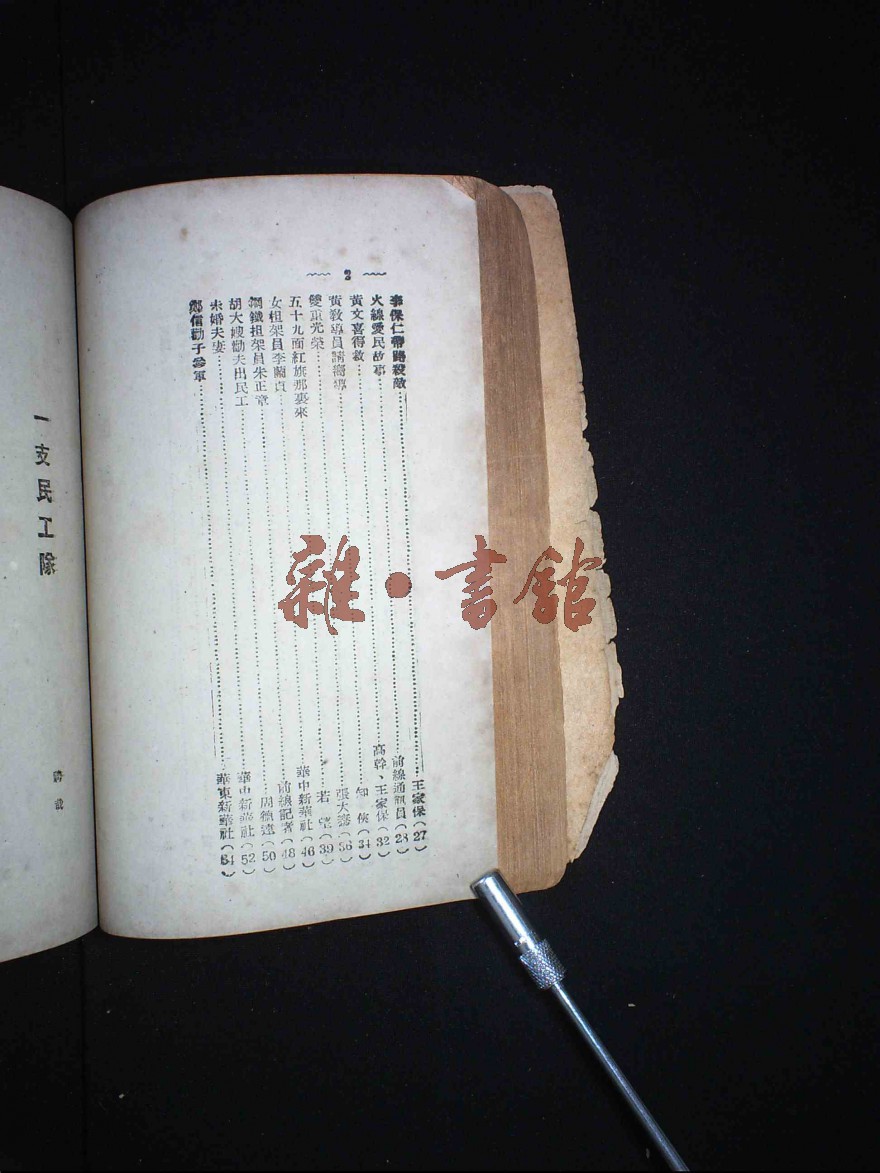 2
李保仁帶路殺敵……王家保(27)
火線愛民故事……前線通訊員(28)
黃文喜得救……高幹、王家保(32)
黃教導員請嚮導……知俠(34)
雙重光榮……張大(36)
五十九面紅旗那裏來……若望(39)
女担架員李蘭貞……華中新華社(46)
鋼鐵担架員朱正章……前線記者(48)
胡大嫂勸夫出民工……周德遠(50)
未婚夫妻……華中新華社(52)
鄭信勸子參軍……華東新華社(54)
一支民工隊
雜·書館